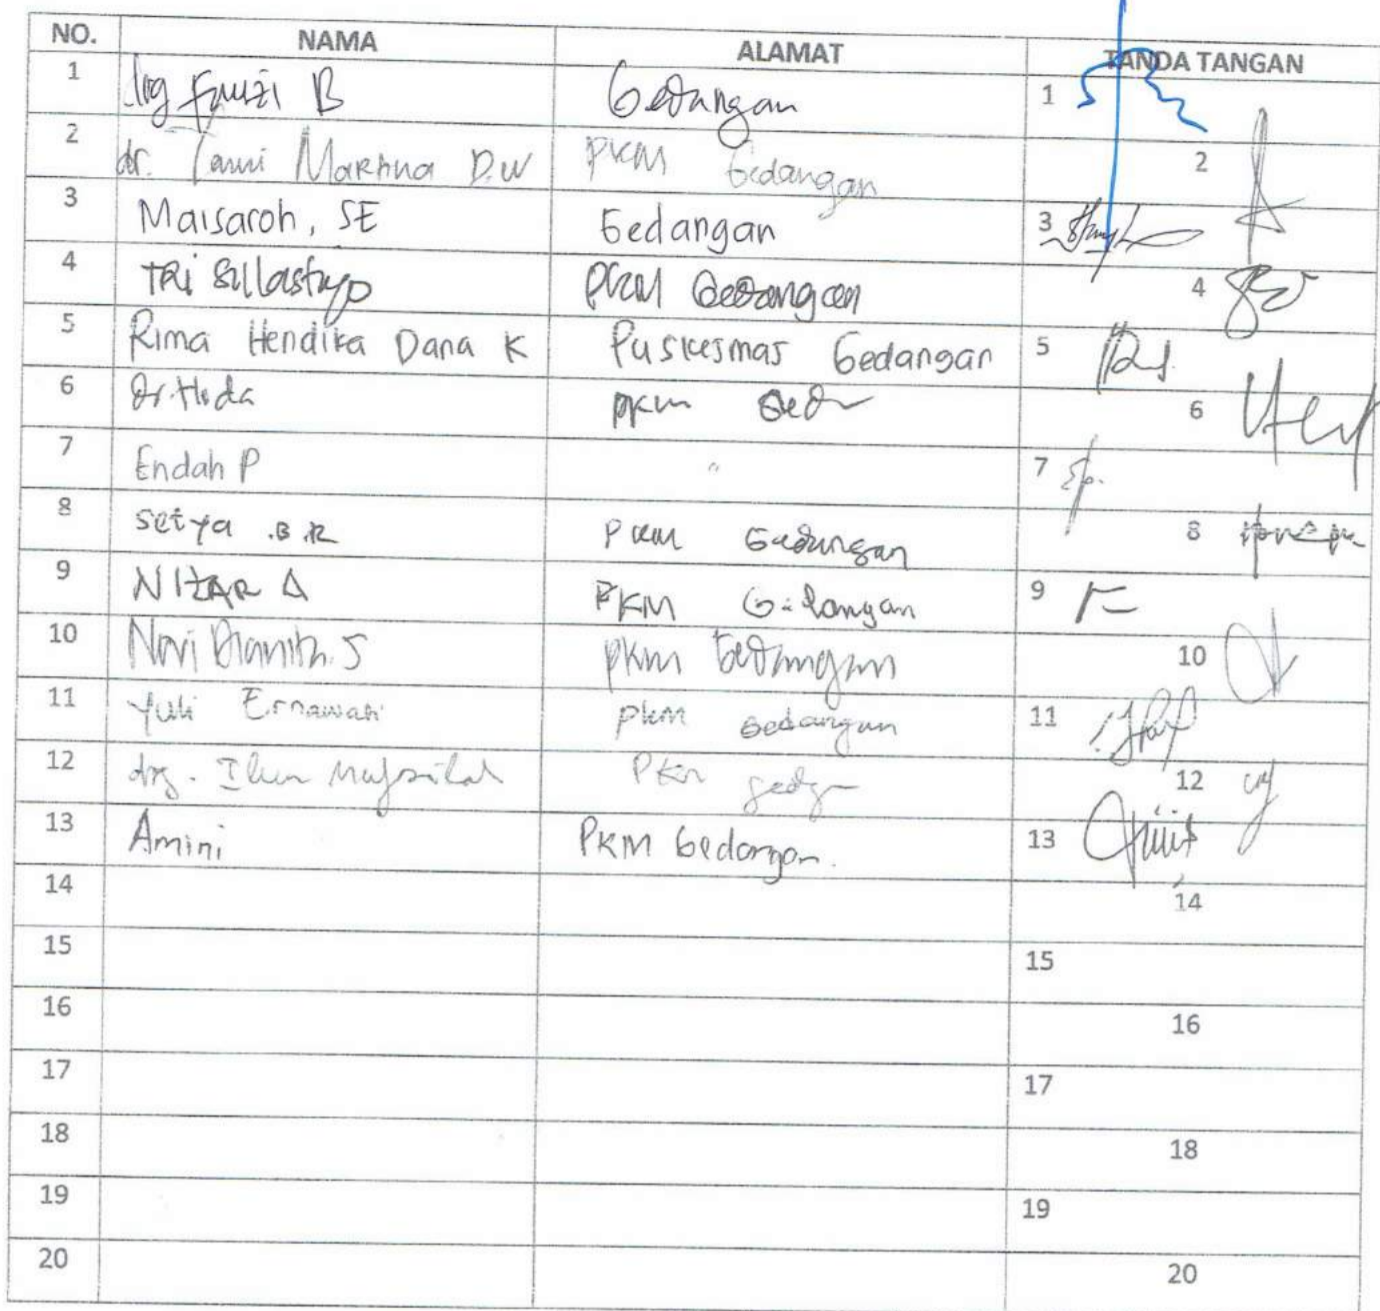 NO. NAMA ALAMAT TANDA TANGAN
1 drg Fauzi B Gedangan 1
2 dr. Tanni Martina D.W PKM Gedangan 2
3 Maisaroh, SE Gedangan 3
4 TRi Sulastyo PKM Gedangan 4
5 Rima Hendika Dana K Puskesmas Gedangan 5
6 Dr. Hida PKM 6
7 Endah P " 7 Ep.
8 Setya .B.R PKM Gedangan 8
9 NIZAR A PKM Gedangan 9
10 Novi S PKM Gedangan 10
11 Yuli Ernawati PKM Gedangan 11
12 drg. PKM 12
13 Amini PKM Gedangan. 13
14 14
15 15
16 16
17 17
18 18
19 19
20 20